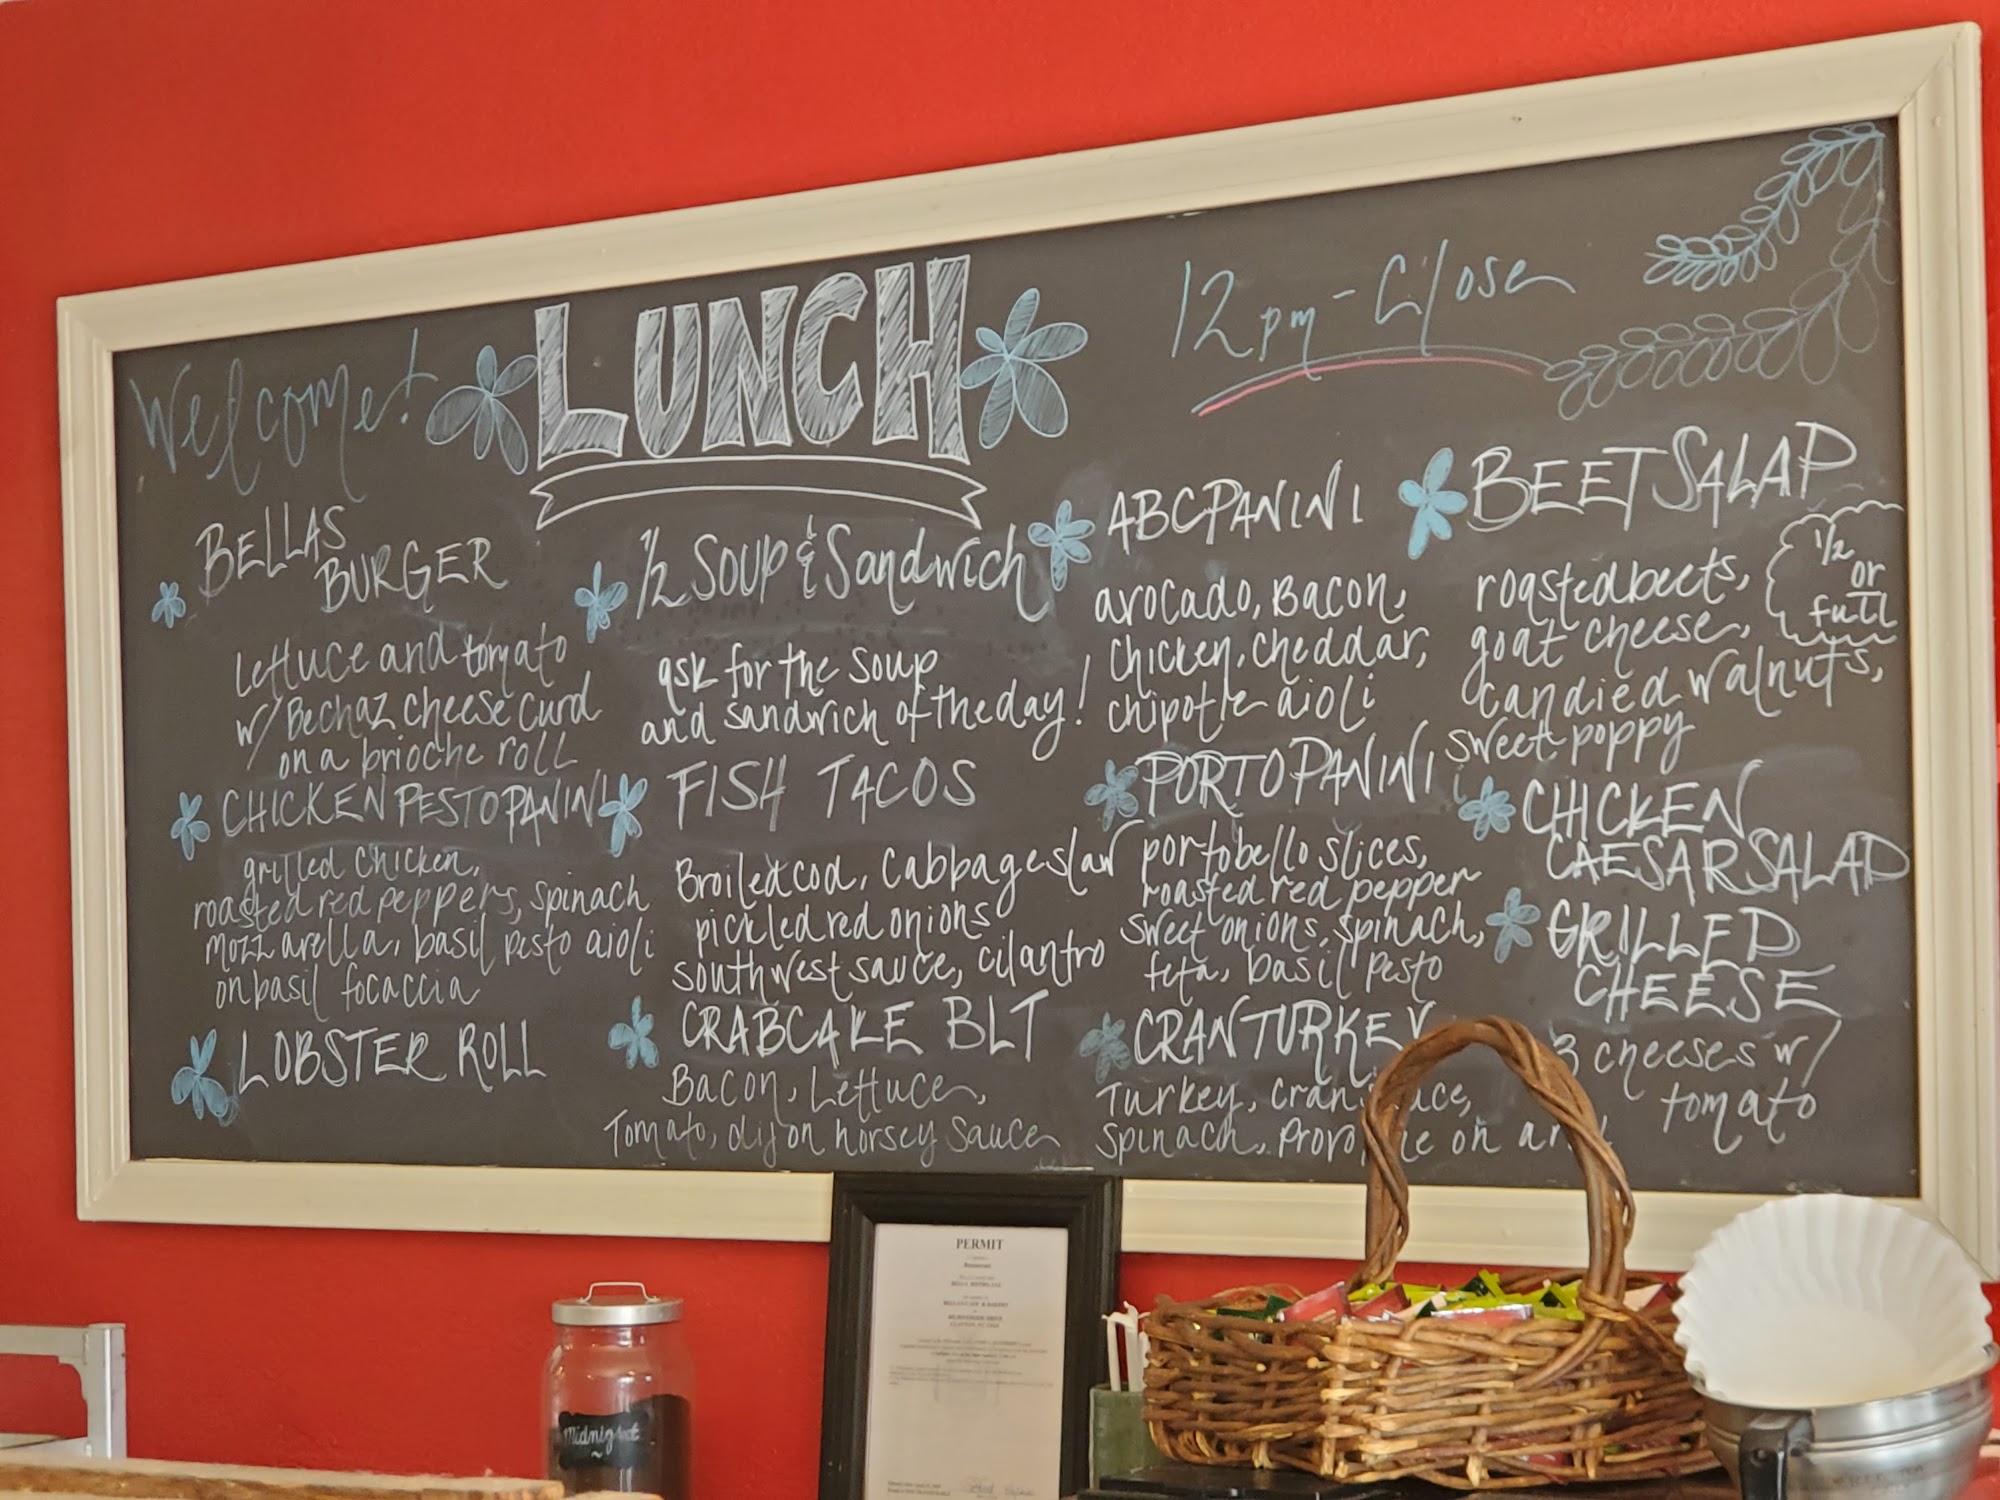 Welcome!
LUNCH
12pm - Close
BELLAS
BURGER
Lettuce and tomato
w/ Bechaz cheese curd
on a brioche roll
CHICKEN PESTO PANINI
grilled chicken,
roasted red peppers, spinach
mozzarella, basil pesto aioli
on basil focaccia
LOBSTER ROLL
1/2 SOUP & Sandwich
ask for the soup
and sandwich of the day!
FISH TACOS
Broiled cod, cabbage slaw
pickled red onions
southwest sauce, cilantro
CRABCAKE BLT
Bacon, Lettuce,
Tomato, dijon horsey sauce
ABC PANINI
avocado, Bacon,
chicken, cheddar,
chipotle aioli
PORTO PANINI
portobello slices,
roasted red pepper
sweet onions, spinach,
feta, basil pesto
CRAN TURKEY
Turkey, cran
spinach, on
BEET SALAD
roasted beets,
goat cheese,
candied walnuts,
sweet poppy
1/2
or
full
CHICKEN
CAESAR SALAD
GRILLED
CHEESE
3 cheeses w/
tomato
PERMIT
Restaurant
CLAYTON, NY
Midnight